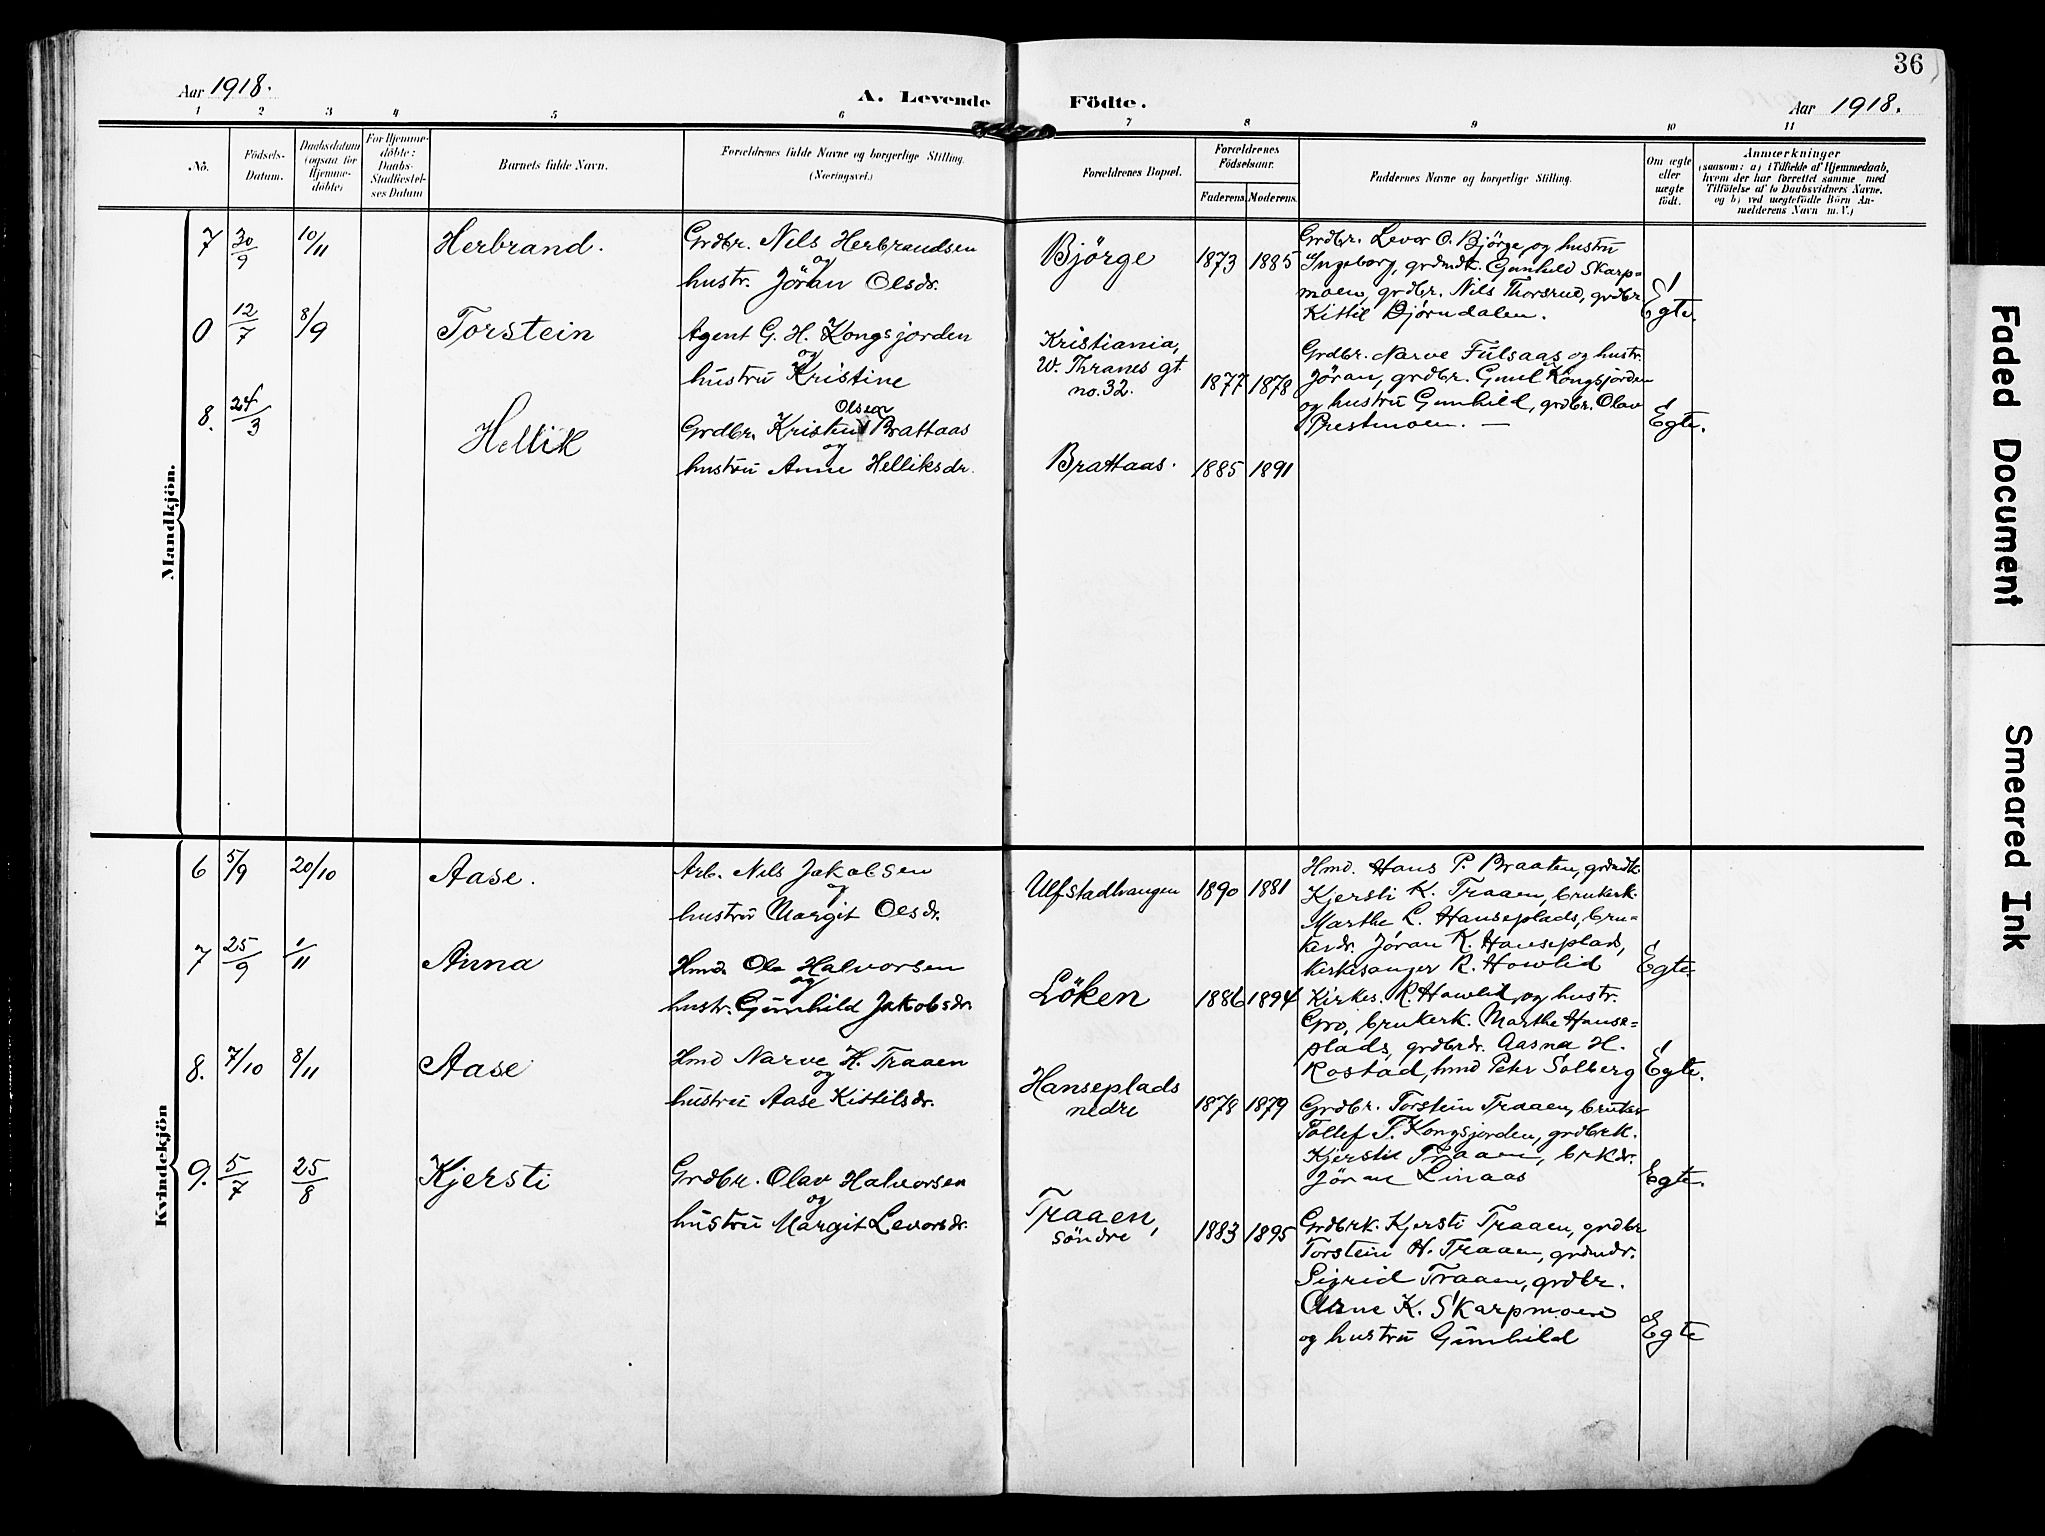 36
Aar 1918.
A. Levende Födte.
Aar 1918.
1 2 3 4 5 6 7 8 9 10 11
No.
Födsels-Datum.
Daabsdatum (ogsaa for Hjemmedöbte)
For Hjemmedöbte: Daabs-Stadfæstelses Datum
Barnets fulde Navn.
Forældrenes fulde Navne og borgerlige Stilling.
(Næringsvei.)
Forældrenes Bopæl.
Forældrenes Födselsaar.
Faderens Moderens
Faddernes Navne og borgerlige Stilling.
Om ægte eller uægte födt.
Anmærkninger
(saasom: a) i Tilfælde af Hjemmedaab,
hvem der har forrettet samme med
Tilföielse af to Daabsvidners Navne,
og b) ved uægtefödte Börn An-
melderens Navn m. V.)
Mandkjön.
7 30/9 10/11 Herbrand. Grdbr. Nils Herbrandsen
og
hustr. Jöran Olsdr.
Björge 1873 1885
Grdbr. Levor O. Björge og hustru
Ingeborg, grdmdk. Gunhild Skarp=
moen, grdbr. Nils Thorsrud, grdbr.
Kittil Djørndalen.
Egte.
0 12/7 8/9 Torstein Agent G. H. Kongsjorden
og
hustru Kristine
Kristiania,
W. Thranes gt
no. 32.
1877 1878
Grdbr. Narve Fulsaas og hustr.
Jøran, grdbr. Gunl. Kongsjorden
og hustru Gunhild, grdbr. Olav
Prestmoen. —
Egte.
8. 24/3 Hellik
Olsen
Grdbr. Kristen Brattaas
og
hustru Anne Helliksdr.
Brattaas. 1885 1891
Kvindekjön
6 5/9 20/10 Aase. Arb. Nils Jakobsen
og
hustru Margit Olsdr.
Ulfstadhaugen 1890 1881
Hmd. Hans P. Braaten, grdmdk.
Kjersti K. Traaen, brukerk.
Marthe L. Hanseplads, bru-
kerdr. Jøran K. Hanseplads,
kirkesanger R. Howlid
Egte
7 25/9 1/11 Anna Hmd. Ola Halvorsen
og
hustr. Gunhild Jakobsdr.
Löken 1886 1894
Kirkes. R. Howlid og hustr.
Gro, brukerk. Marthe Hanse=
plads, grdbrdr. Aasne H.
Rostad, hmd Peter Solberg
Egte.
8. 7/10 8/11 Aase Hmd Narve H. Traaen
og
hustru Aase Kittilsdr.
Hanseplads
nedre
1878 1879
Grdbr. Torstein Traaen, bruker
Tollef T. Kongsjorden, grdbrk.
Kjersti Traaen, brkdr.
Jøran Linaas
Egte.
9. 5/7 25/8 Kjersti Grdbr. Olav Halvorsen
og
hustru Margit Levorsdr.
Traaen,
söndre
1883 1895
Grdbrk. Kjersti Traaen, grdbr
Torstein H. Traaen, grdmdr.
Sigrid Traaen, grdbr.
Arne K. Skarpmoen
og hustru Gunhild
Egte
Faded Document
Smeared Ink